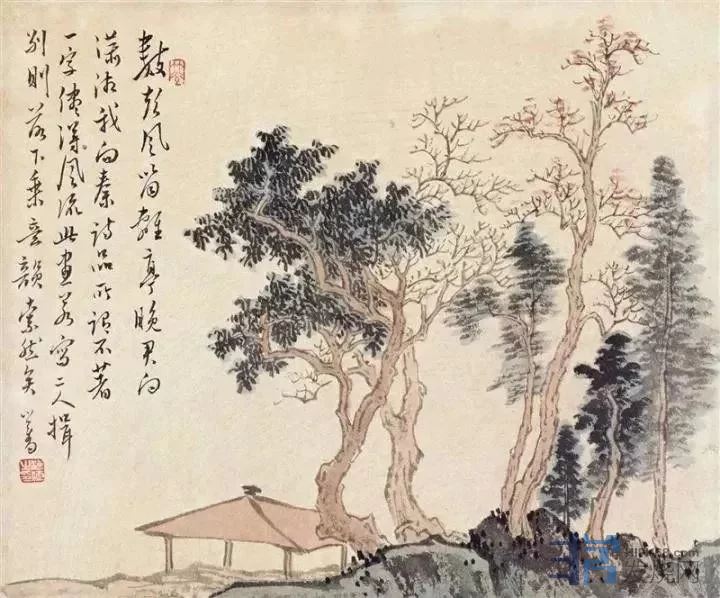 數聲風笛離亭晚君向
瀟湘我向秦詩品所謂不著
一字儘得風流此畫若寫二人揖
別則落下乘意韻索然矣
发烧网